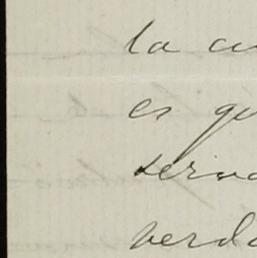 la cu
es qu
servi
verda